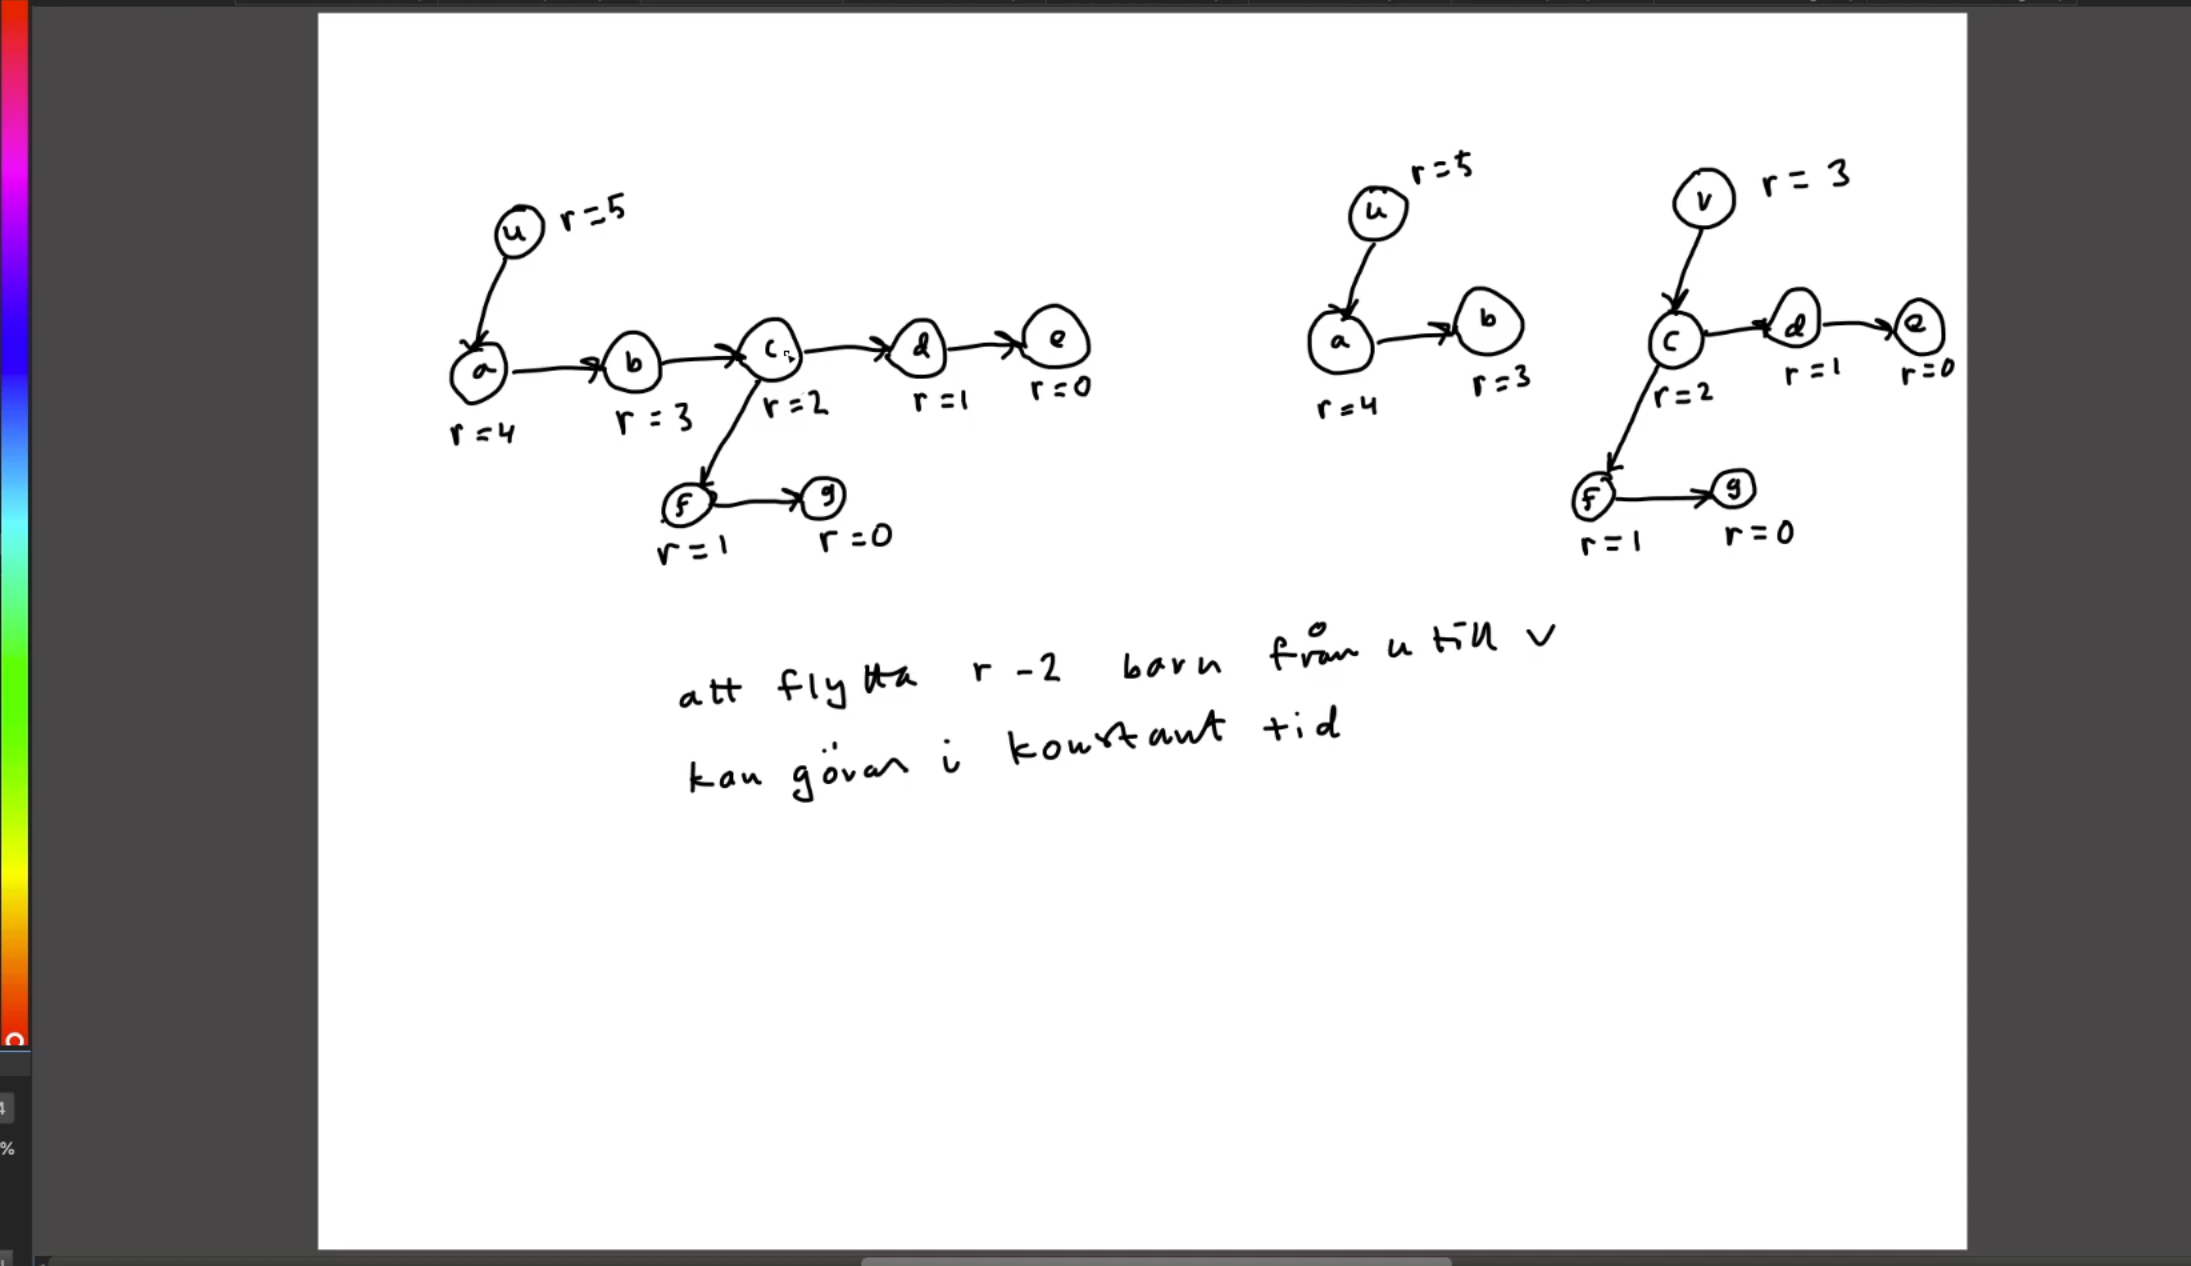 u r=5
a r=4
b r=3
c r=2
d r=1
e r=0
f r=1
g r=0
u r=5
a r=4
b r=3
v r=3
c r=2
d r=1
e r=0
f r=1
g r=0
att flytta r-2 barn från u till v
kan göras i konstant tid
4
%